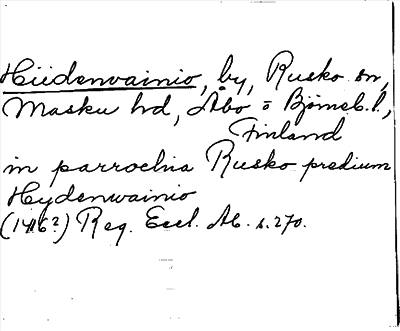 Hiidenvainio, by, Rusko sn,
Masku hd, Åbo o Björneb. l.,
Finland
in parrochia Rusko predium
Heydenwainio
(1416?) Reg. Eccl. Ab. s. 270.